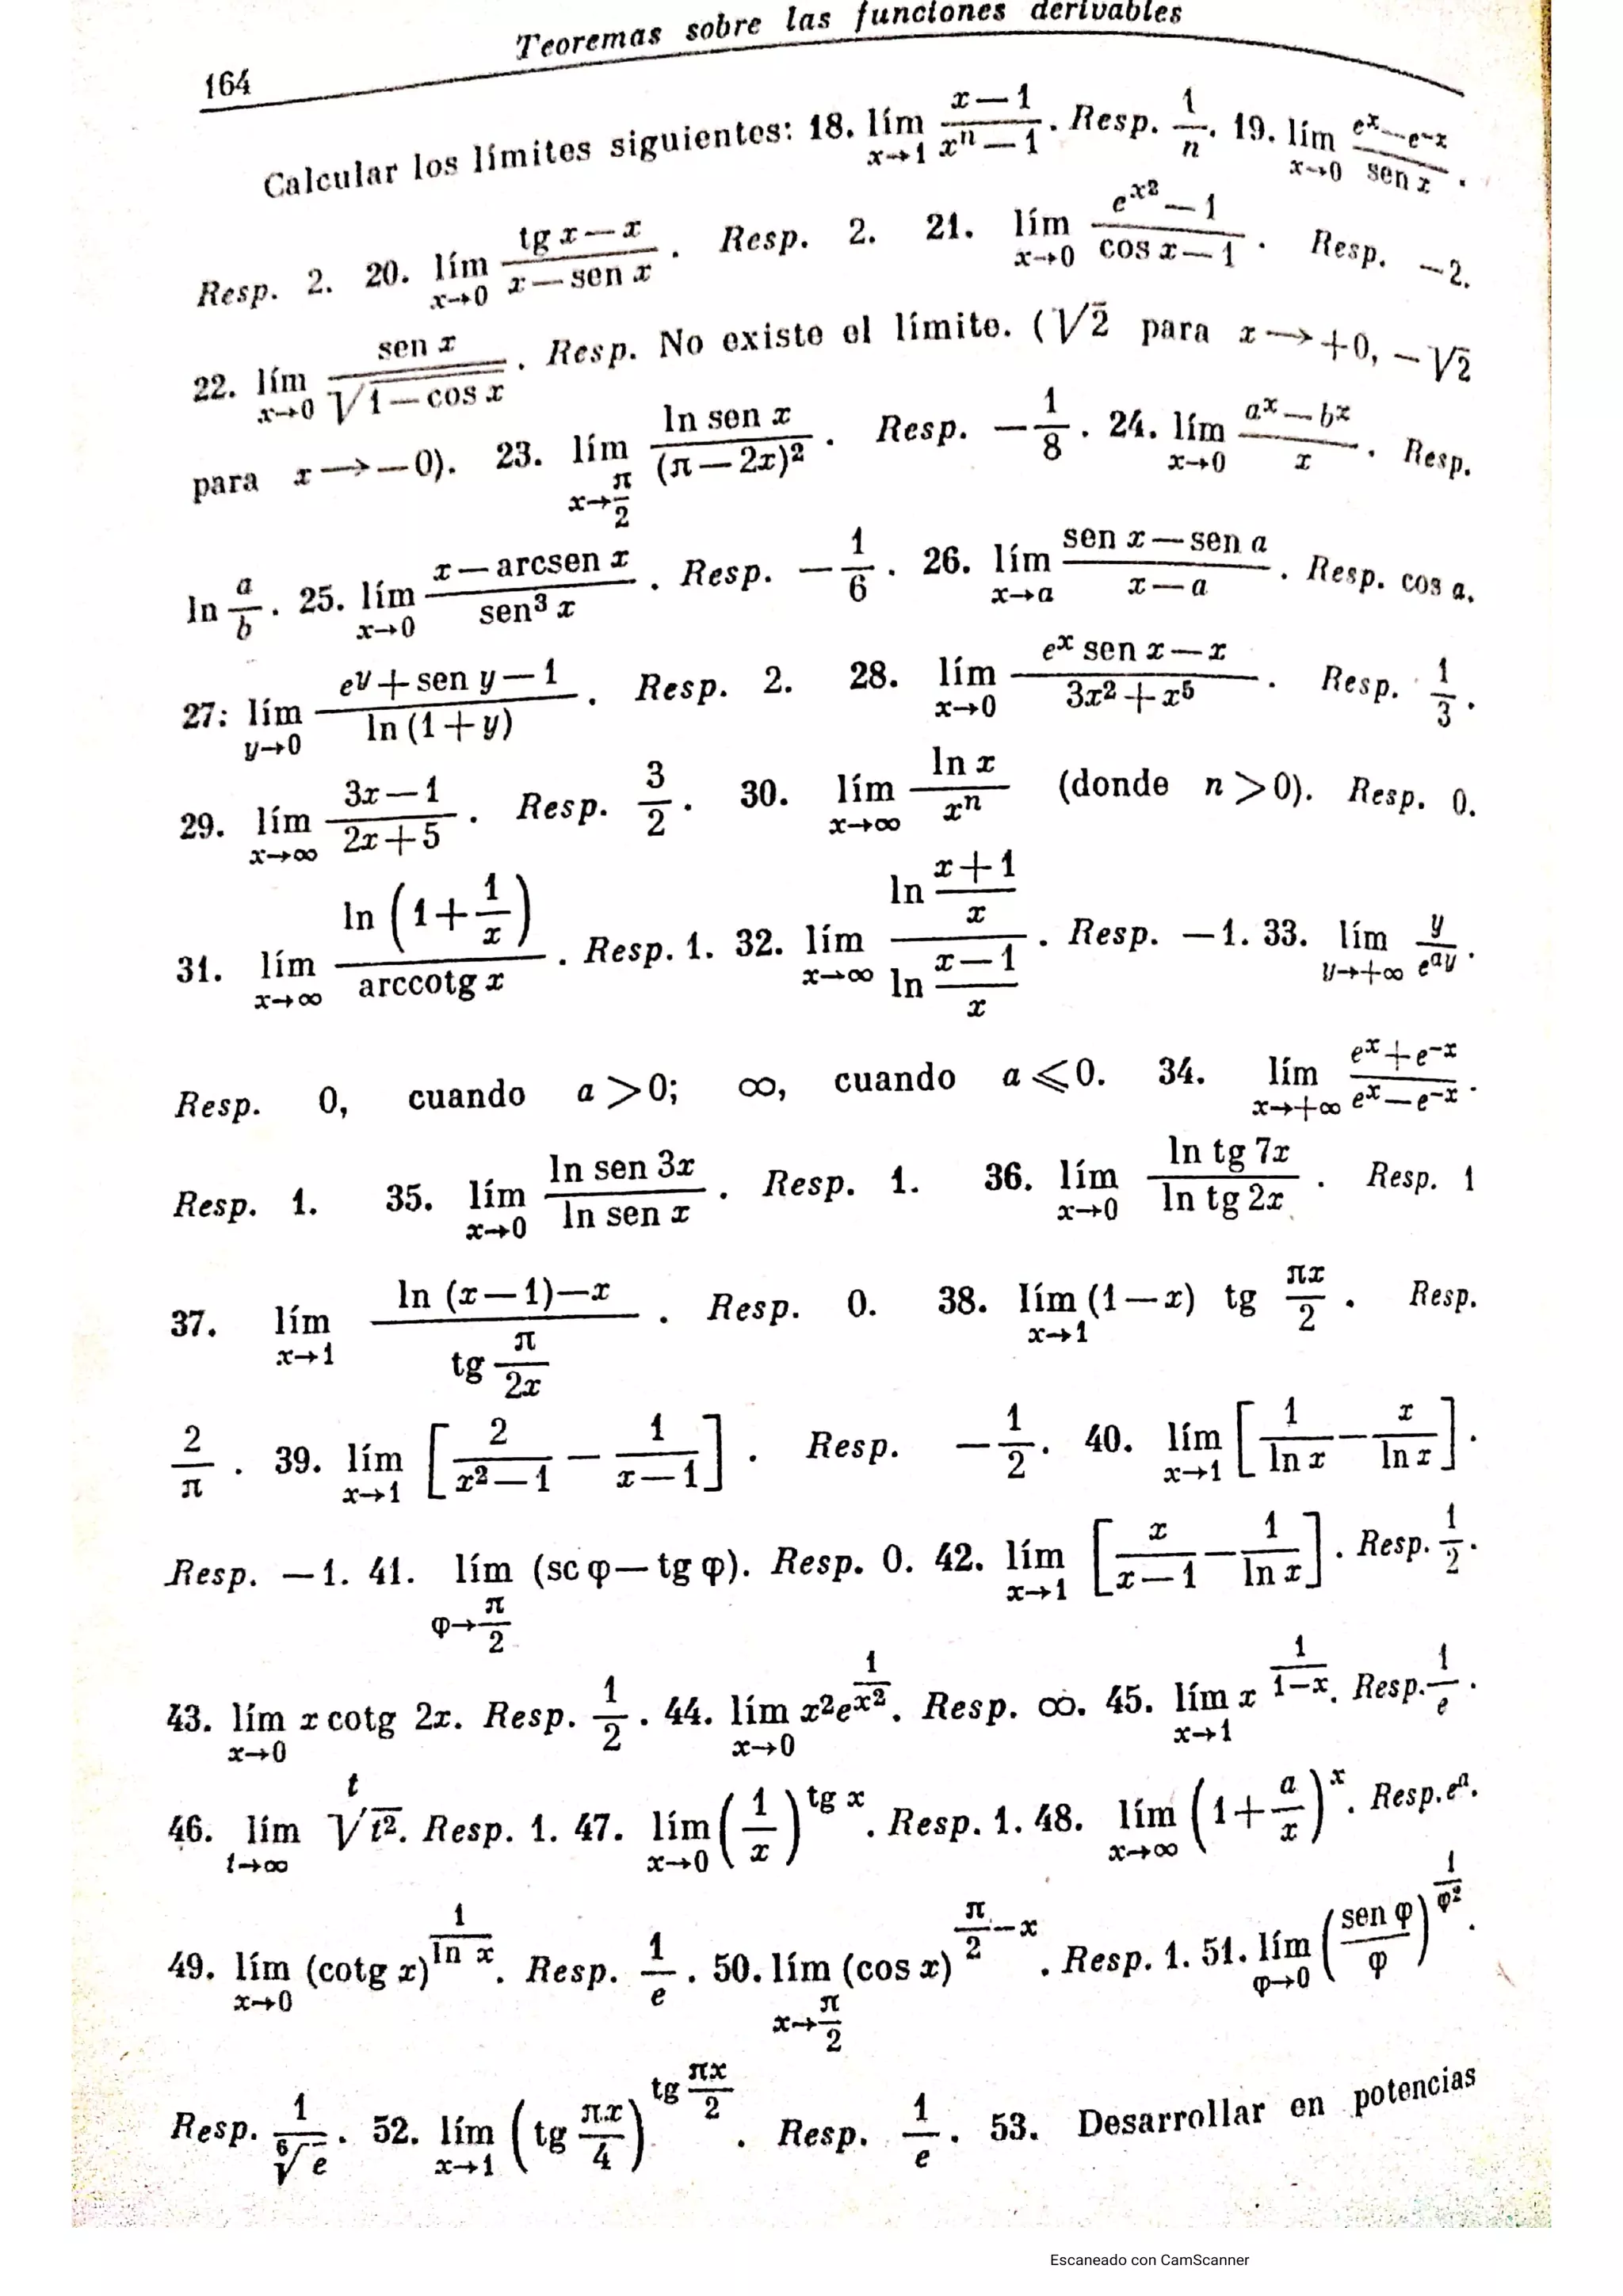 164 Teoremas sobre las funciones derivables
Calcular los límites siguientes: 18. $\lim_{x\to 1} \frac{x-1}{x^n-1}$. Resp. $\frac{1}{n}$. 19. $\lim_{x\to 0} \frac{e^x-e^{-x}}{\text{sen } x}$.
Resp. 2. 20. $\lim_{x\to 0} \frac{\text{tg } x-x}{x-\text{sen } x}$. Resp. 2. 21. $\lim_{x\to 0} \frac{e^{x^2}-1}{\cos x-1}$. Resp. −2.
22. $\lim_{x\to 0} \frac{\text{sen } x}{\sqrt{1-\cos x}}$. Resp. No existe el límite. ($\sqrt{2}$ para $x \to +0$, $-\sqrt{2}$
para $x \to -0$). 23. $\lim_{x\to \frac{\pi}{2}} \frac{\ln \text{sen } x}{(\pi-2x)^2}$. Resp. $-\frac{1}{8}$. 24. $\lim_{x\to 0} \frac{a^x-b^x}{x}$. Resp.
$\ln \frac{a}{b}$. 25. $\lim_{x\to 0} \frac{x-\text{arcsen } x}{\text{sen}^3 x}$. Resp. $-\frac{1}{6}$. 26. $\lim_{x\to a} \frac{\text{sen } x-\text{sen } a}{x-a}$. Resp. cos a.
27: $\lim_{y\to 0} \frac{e^y+\text{sen } y-1}{\ln (1+y)}$. Resp. 2. 28. $\lim_{x\to 0} \frac{e^x \text{sen } x-x}{3x^2+x^5}$. Resp. $\frac{1}{3}$.
29. $\lim_{x\to \infty} \frac{3x-1}{2x+5}$. Resp. $\frac{3}{2}$. 30. $\lim_{x\to \infty} \frac{\ln x}{x^n}$ (donde $n > 0$). Resp. 0.
31. $\lim_{x\to \infty} \frac{\ln \left(1+\frac{1}{x}\right)}{\text{arccotg } x}$. Resp. 1. 32. $\lim_{x\to \infty} \frac{\ln \frac{x+1}{x}}{\ln \frac{x-1}{x}}$. Resp. −1. 33. $\lim_{y\to +\infty} \frac{y}{e^{ay}}$.
Resp. 0, cuando $a > 0$; ∞, cuando $a \leqslant 0$. 34. $\lim_{x\to +\infty} \frac{e^x+e^{-x}}{e^x-e^{-x}}$.
Resp. 1. 35. $\lim_{x\to 0} \frac{\ln \text{sen } 3x}{\ln \text{sen } x}$. Resp. 1. 36. $\lim_{x\to 0} \frac{\ln \text{tg } 7x}{\ln \text{tg } 2x}$. Resp. 1
37. $\lim_{x\to 1} \frac{\ln (x-1)-x}{\text{tg } \frac{\pi}{2x}}$. Resp. 0. 38. $\lim_{x\to 1} (1-x) \text{ tg } \frac{\pi x}{2}$. Resp.
$\frac{2}{\pi}$. 39. $\lim_{x\to 1} \left[\frac{2}{x^2-1}-\frac{1}{x-1}\right]$. Resp. $-\frac{1}{2}$. 40. $\lim_{x\to 1} \left[\frac{1}{\ln x}-\frac{x}{\ln x}\right]$.
Resp. −1. 41. $\lim_{\varphi\to \frac{\pi}{2}} (\text{sc } \varphi-\text{tg } \varphi)$. Resp. 0. 42. $\lim_{x\to 1} \left[\frac{x}{x-1}-\frac{1}{\ln x}\right]$. Resp. $\frac{1}{2}$.
43. $\lim_{x\to 0} x \text{ cotg } 2x$. Resp. $\frac{1}{2}$. 44. $\lim_{x\to 0} x^2e^{\frac{1}{x^2}}$. Resp. ∞. 45. $\lim_{x\to 1} x^{\frac{1}{1-x}}$. Resp. $\frac{1}{e}$.
46. $\lim_{t\to \infty} \sqrt[t]{t^2}$. Resp. 1. 47. $\lim_{x\to 0} \left(\frac{1}{x}\right)^{\text{tg } x}$. Resp. 1. 48. $\lim_{x\to \infty} \left(1+\frac{a}{x}\right)^x$. Resp. $e^a$.
49. $\lim_{x\to 0} (\text{cotg } x)^{\frac{1}{\ln x}}$. Resp. $\frac{1}{e}$. 50. $\lim_{x\to \frac{\pi}{2}} (\cos x)^{\frac{\pi}{2}-x}$. Resp. 1. 51. $\lim_{\varphi\to 0} \left(\frac{\text{sen } \varphi}{\varphi}\right)^{\frac{1}{\varphi^2}}$.
Resp. $\frac{1}{\sqrt[6]{e}}$. 52. $\lim_{x\to 1} \left(\text{tg } \frac{\pi x}{4}\right)^{\text{tg } \frac{\pi x}{2}}$. Resp. $\frac{1}{e}$. 53. Desarrollar en potencias
Escaneado con CamScanner